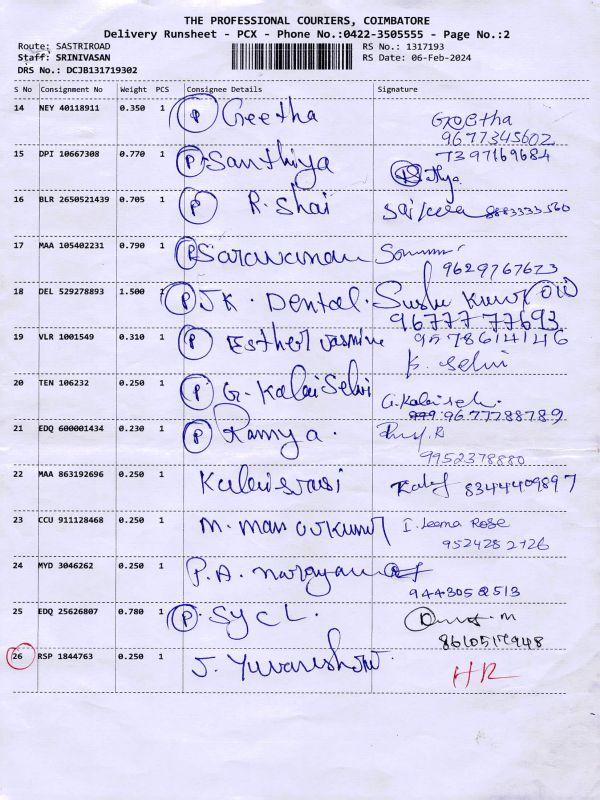 THE PROFESSIONAL COURIERS, COIMBATORE
Delivery Runsheet - PCX - Phone No.:0422-3505555 - Page No.:2
Route: SASTRIROAD RS No.: 1317193
Staff: SRINIVASAN RS Date: 06-Feb-2024
DRS No.: DCJB131719302
S No Consignment No Weight PCS Consignee Details Signature
14 NEY 40118911 0.350 1 P Geetha Geetha
9677345602
15 DPI 10667308 0.770 1 P Santhiya 7397169684
16 BLR 2650521439 0.705 1 P R. Shai 8883333560
17 MAA 105402231 0.790 1 P Saravanan
9629767623
18 DEL 529278893 1.500 1 P JK. Dental.
9677777693
19 VLR 1001549 0.310 1 P Esther Jasmine 9578614146
K. Selvi
20 TEN 106232 0.250 1 P G. Kalai Selvi G. Kalaiselvi
9677788789
21 EDQ 600001434 0.230 1 P Ramya.
9952378880
22 MAA 863192696 0.250 1 Kalaivani 8344409897
23 CCU 911128468 0.250 1 M. I. Leema Rose
9524282726
24 MYD 3046262 0.250 1 P.A. Narayanan
9443058513
25 EDQ 25626807 0.780 1 P SYCL.
8610517948
26 RSP 1844763 0.250 1 J. HR